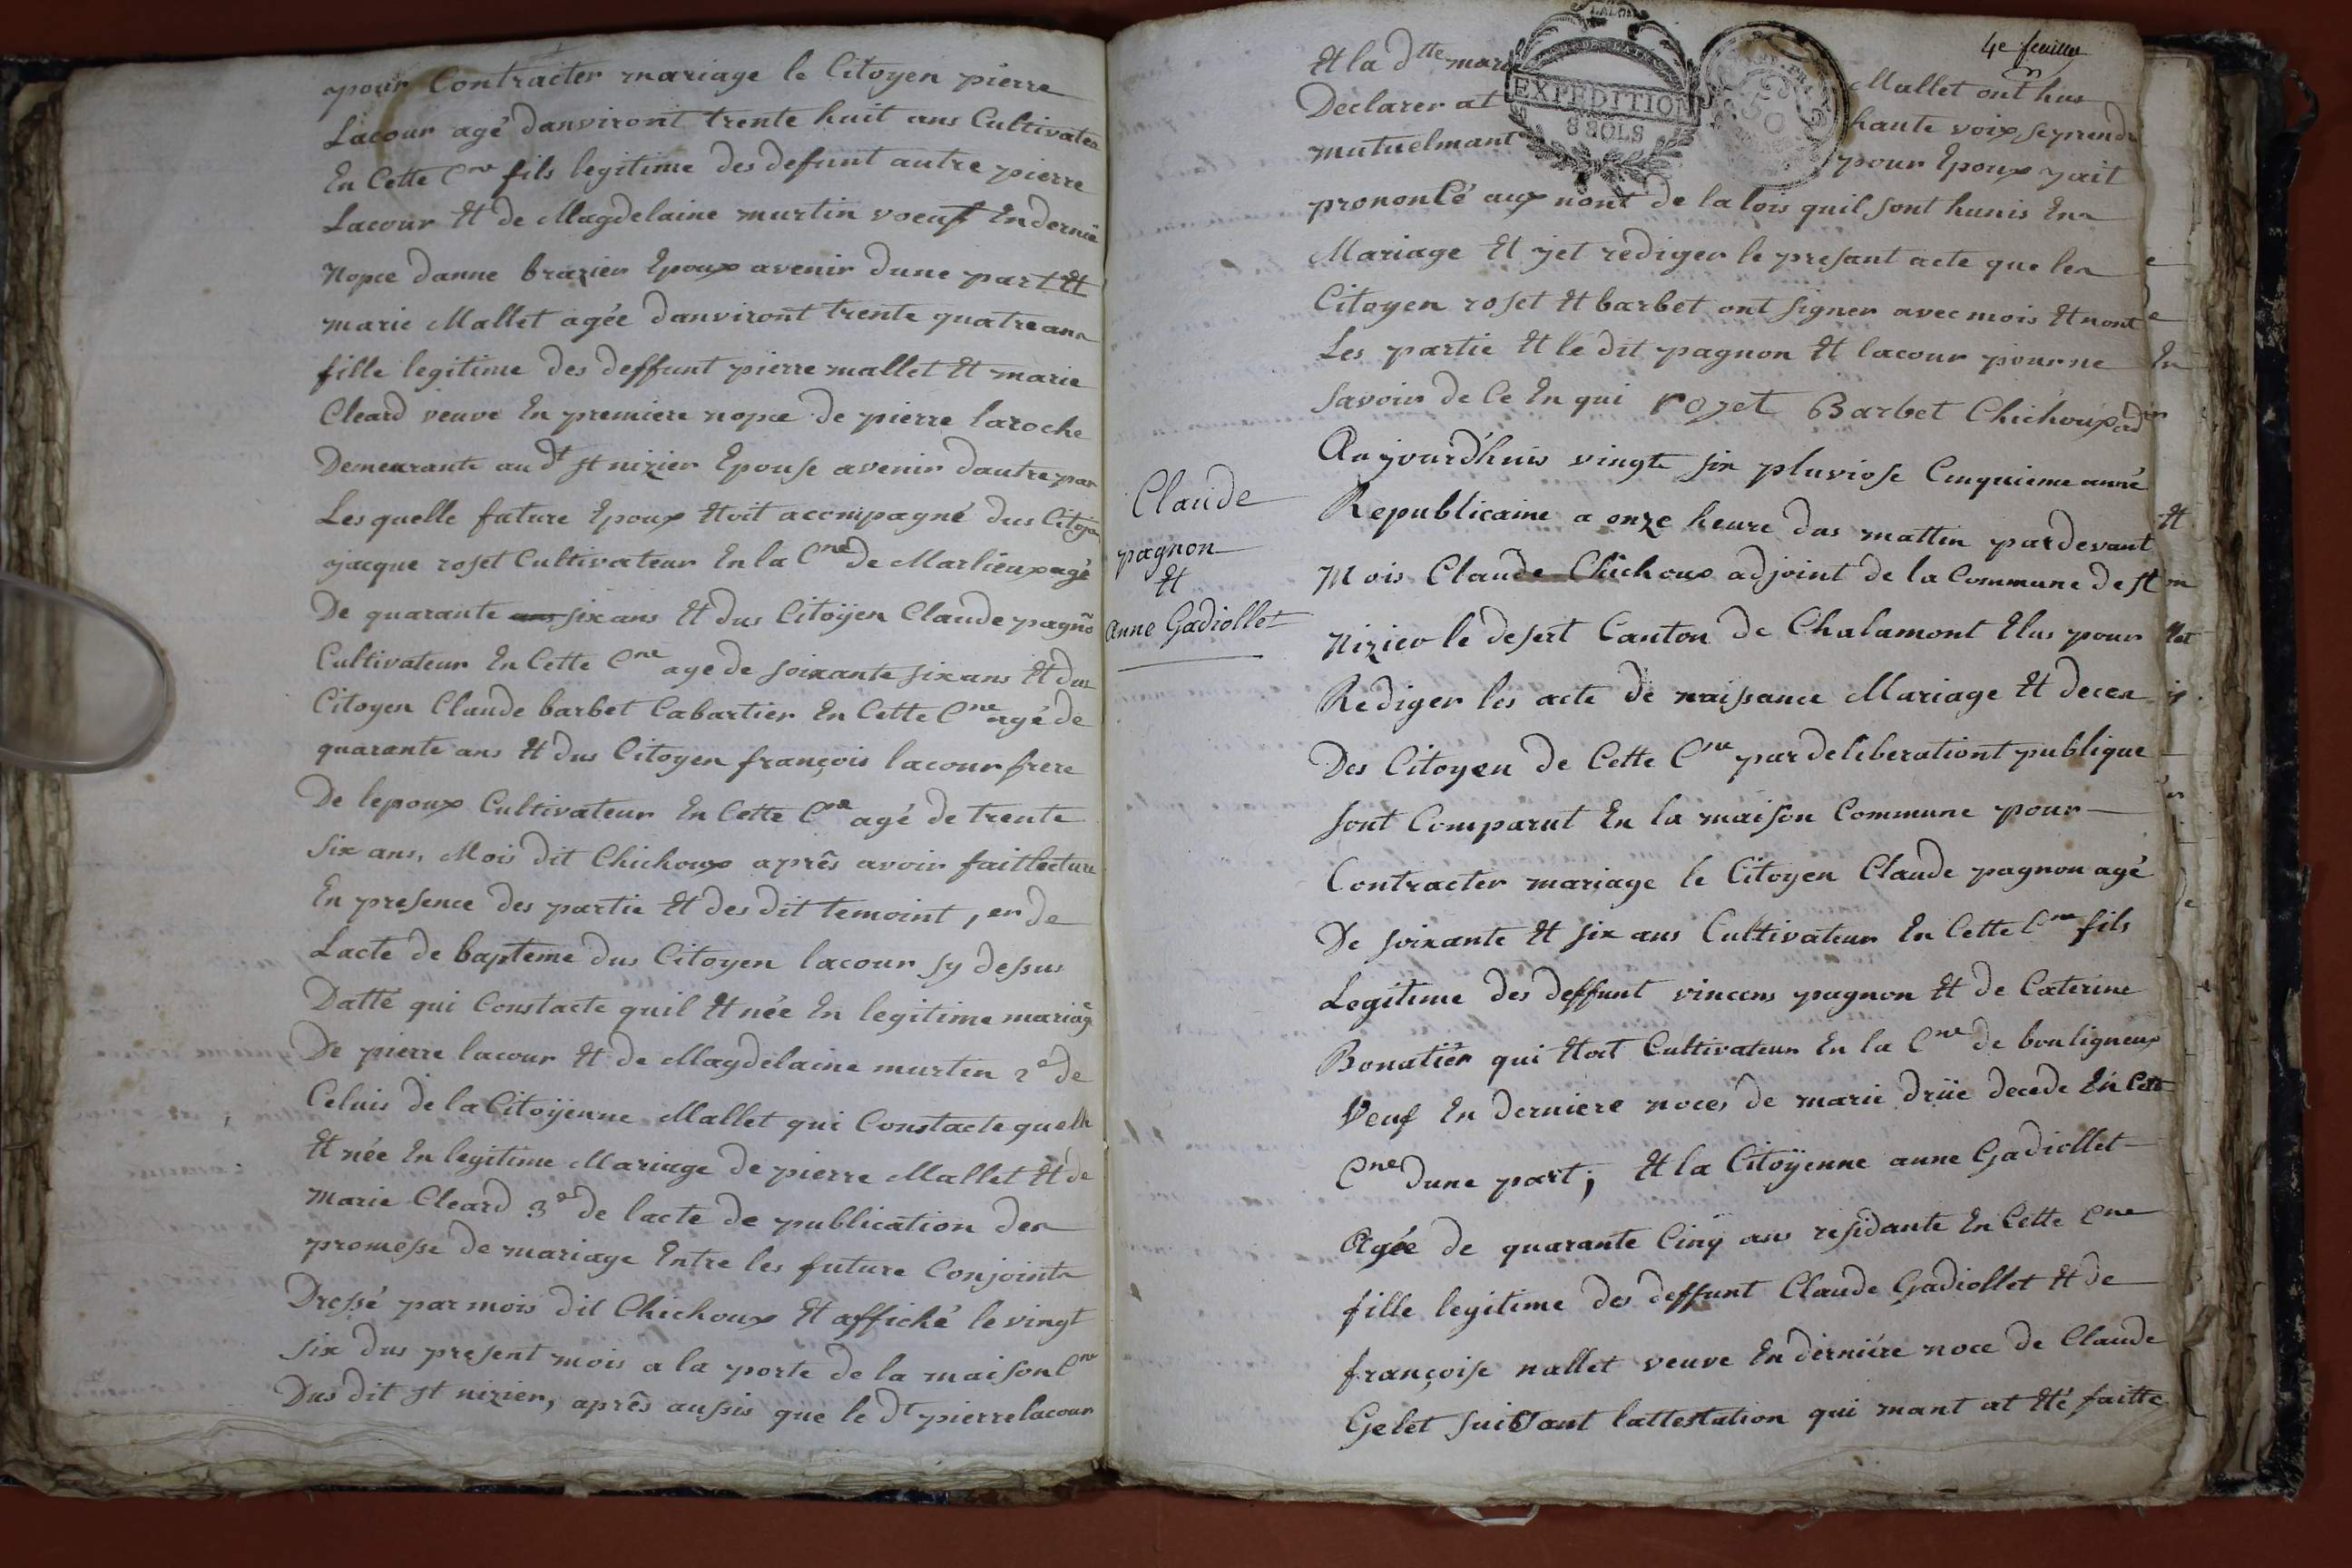 pour Contracter mariage le Citoyen pierre
Lacour agé danviront trente huit ans Cultivateur
En Cette Cne fils legitime des defunt autre pierre
Lacour Et de Magdelaine murtin voeuf En derniè
Nopce danne brazier Epoux avenir dune part Et
marie Mallet agée danviront trente quatre ans
fille legitime des deffunt pierre mallet Et marie
Cleard veuve En premiere nopce de pierre laroche
Demeurante au dt st nizier Epouse avenir dautre par
Les quelle future Epoux Etoit acompagné dus Citoyen
jacque roset Cultivateur En la Cne de Marlieux agé
De quarante ans six ans Et dus Citoÿen Claude pagnõ
Cultivateur En Cette Cne age de soixante six ans Et dus
Citoyen Claude barbet Cabartier En Cette Cne agé de
quarante ans Et dus Citoyen françois lacour frere
De lepoux Cultivateur En Cette Cne agé de trente
Six ans, Mois dit Chichoux aprês avoir fait lecture
En presence des partie Et des dit temoint, er de
Lacte de bapteme dus Citoyen lacour sy dessus
Datté qui Constacte quil Et née En legitime mariag
De pierre lacour Et de Magdelaine murtin 2e de
Celuis de la Citoÿenne Mallet qui Constacte quelle
Et née En legitime Mariage de pierre Mallet Et de
Marie Cleard 3e de lacte de publication des
promesse de mariage Entre les future Conjoints
Dressé par mois dit Chichoux Et affiché le vingt
six dus present mois a la porte de la maison Cne
Dus dit st nizier, aprês aussis que le dt pierre lacour
4e feuillee
Et la dtte marie Mallet ont hus
EXPEDITION
8 SOLS
50
Declarer at haute voix se prendre
mutuelmant pour Epoux jait
prononcé aux nont de la lois quil sont hunis En
Mariage Et jet rediger le presant acte que les
Citoyen roset Et barbet ont signer avec mois Et nont
Les partie Et le dit pagnon Et lacour pour ne
Savoir de Ce En qui rozet Barbet Chichoux adj
Claude
pagnon
Et
Anne Gadiollet
Aujourd'huis vingte six pluviose Cinquieme anné
Republicaine a onze heure dus mattin par devant
Mois Claude Chichoux adjoint de la Commune de st
Nizier le desert Canton de Chalamont Elus pour
Rediger les acte de naissance Mariage Et deces
Des Citoyen de Cette Cne par deliberationt publique
sont Comparut En la maison Commune pour
Contracter mariage le Citoyen Claude pagnon agé
De soixante Et six ans Cultivateur En Cette Cne fils
Legitime des deffunt vincens pagnon Et de Caterine
Bonatier qui Etoit Cultivateur En la Cne de bouligneux
Veuf En derniere noces de marie drüe decede En Cette
Cne dune part; Et la Citoÿenne anne Gadiollet
Agée de quarante Cinq ans residante En Cette Cne
fille legitime des deffunt Claude Gadiollet Et de
françoise nallet veuve En derniére noce de Claude
Gelet suivant lattestation qui mant at Eté faitte